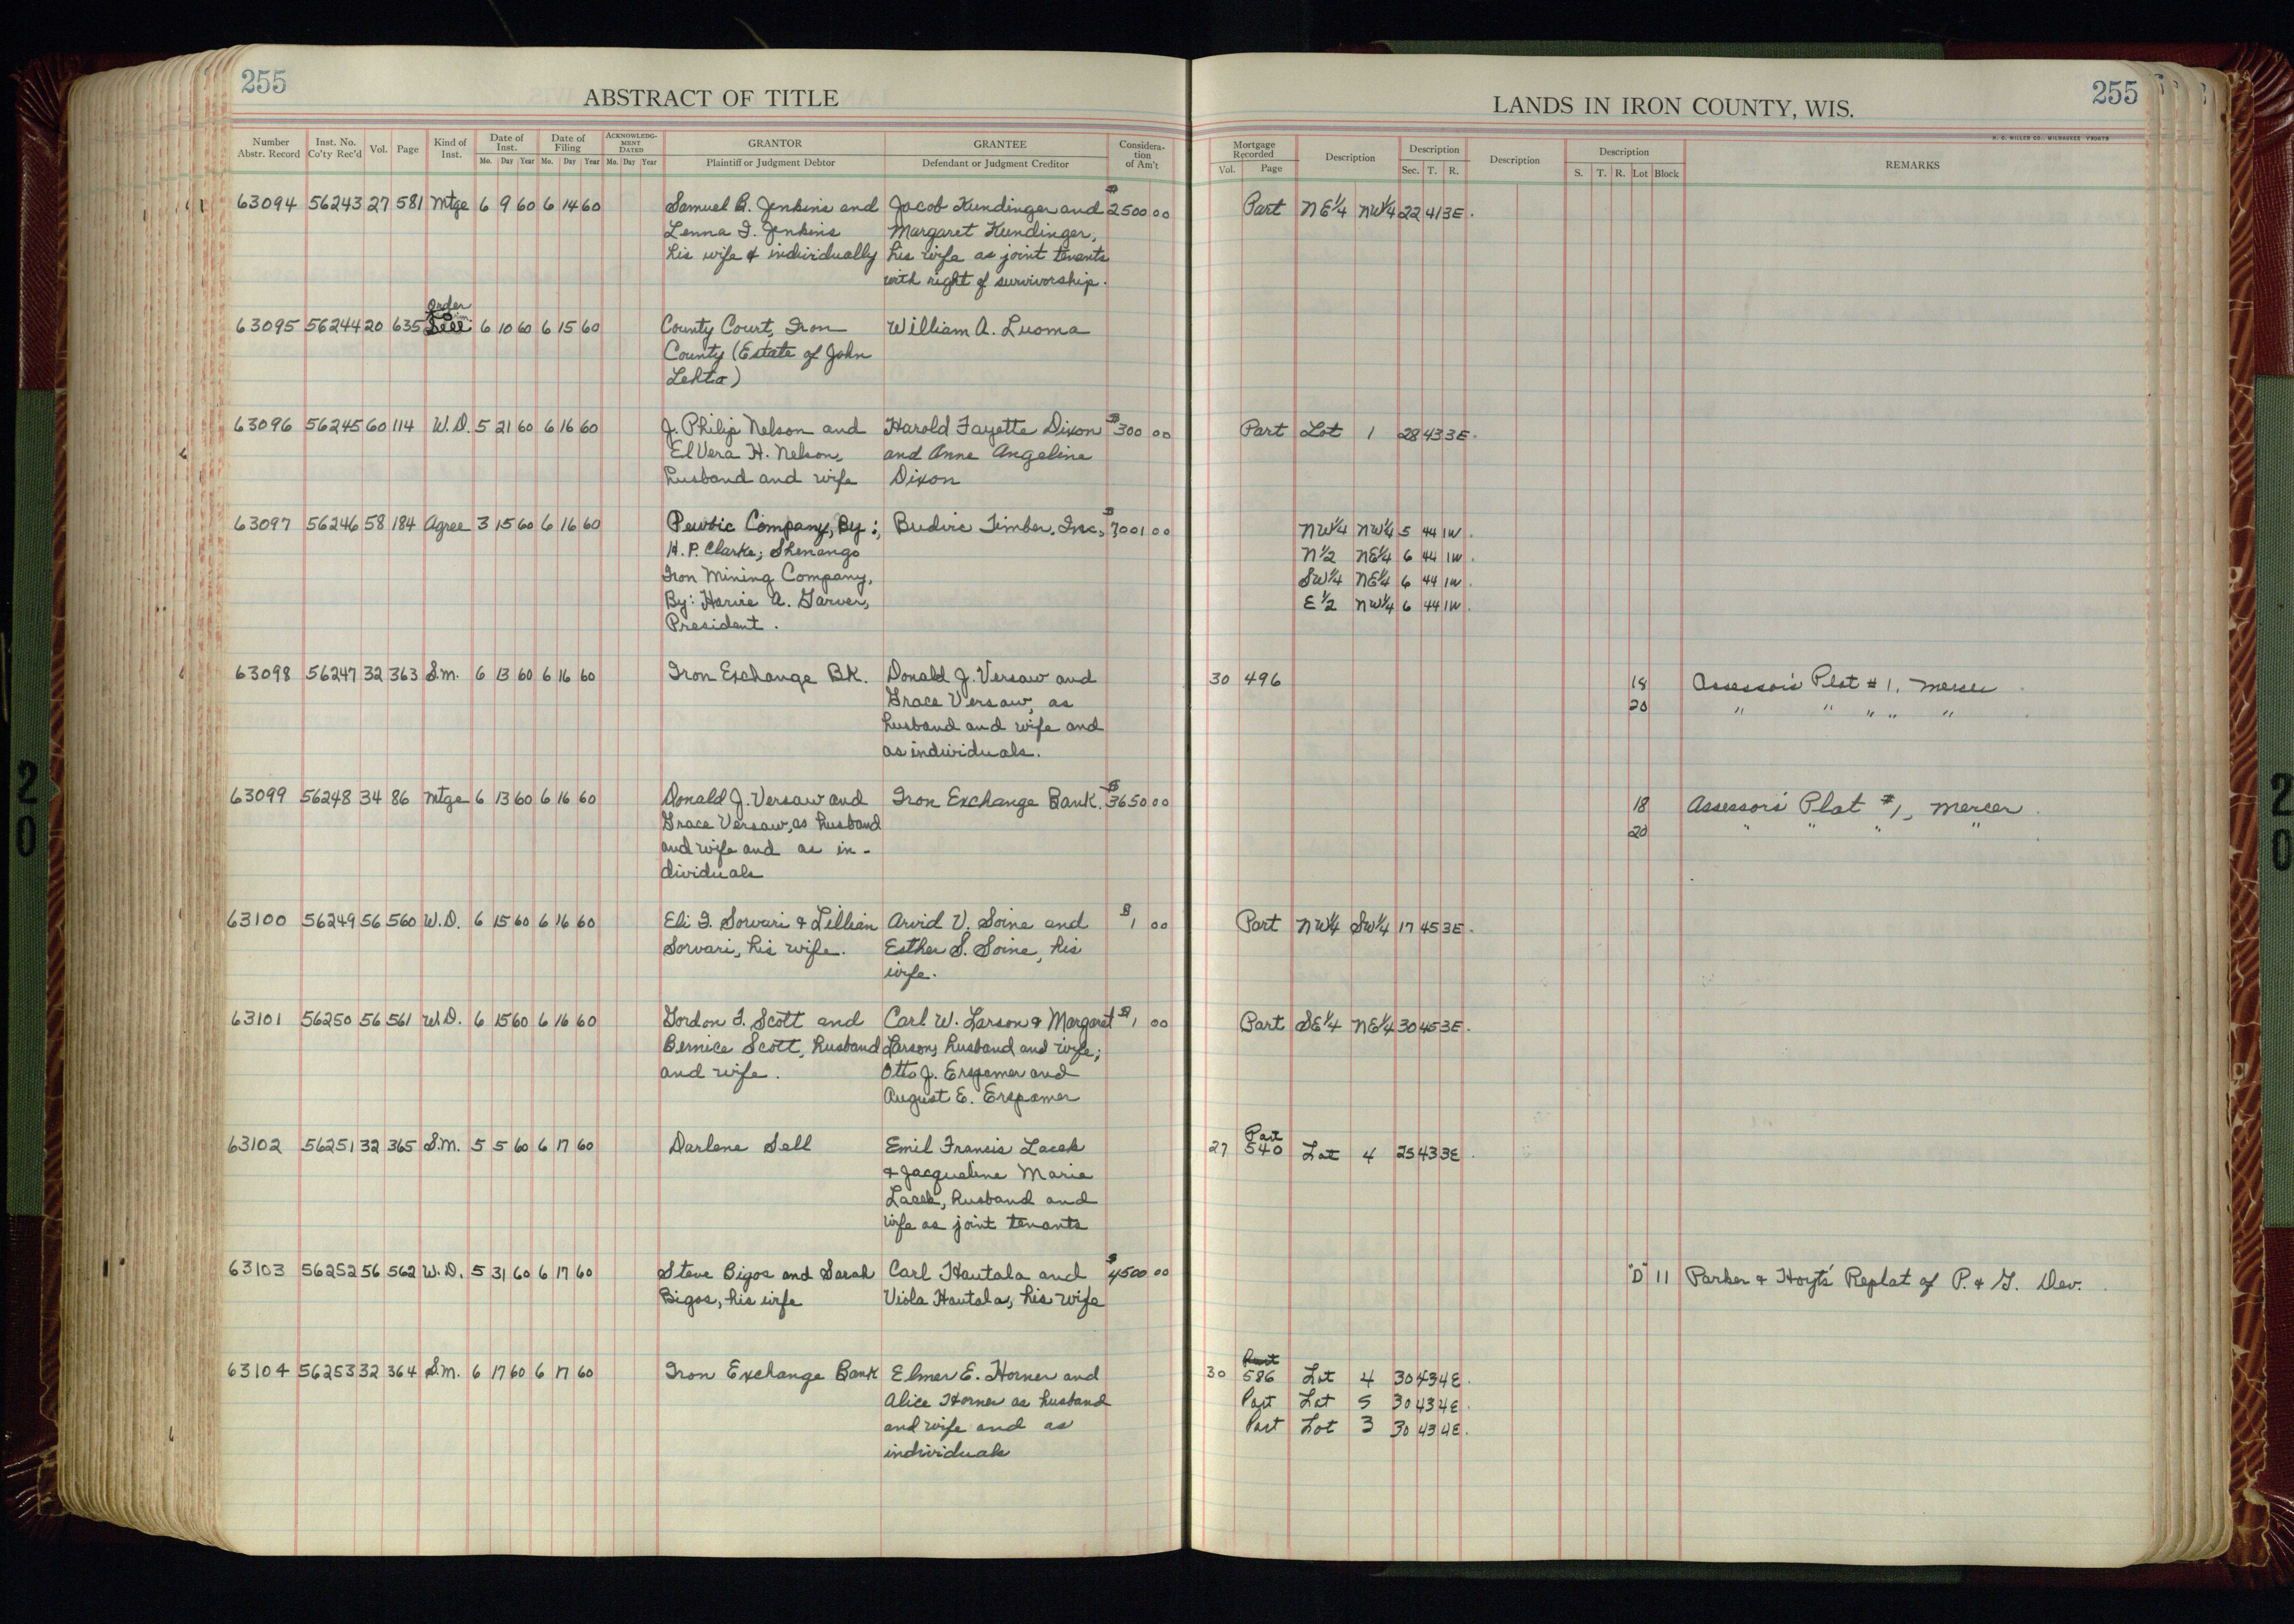 255
ABSTRACT OF TITLE
Number Abstr. Record Inst. No. Co'ty Rec'd Vol. Page Kind of Inst. Date of Inst. Mo. Day Year Date of Filing Mo. Day Year ACKNOWLEDGMENT DATED Mo. Day Year GRANTOR Plaintiff or Judgment Debtor GRANTEE Defendant or Judgment Creditor Consideration of Am't
63094 56243 27 581 Mtge 6 9 60 6 14 60 Samuel B. Jenkins and Jacob Kundinger and $2500 00
Lenna I. Jenkins Margaret Kundinger,
his wife & individually his wife as joint tenants
with right of survivorship.
Order
63095 56244 20 635 Sell 6 10 60 6 15 60 County Court, Iron William A. Luoma
County (Estate of John
Lehto)
63096 56245 60 114 W.D. 5 21 60 6 16 60 J. Philip Nelson and Harold Fayette Dixon $300 00
ElVera H. Nelson, and Anne Angeline
husband and wife Dixon
63097 56246 58 184 Agree 3 15 60 6 16 60 Pewbic Company, By: Budvic Timber, Inc., $7001 00
H.P. Clarke; Shenango
Iron Mining Company,
By: Harvie A. Garver,
President.
63098 56247 32 363 S.M. 6 13 60 6 16 60 Iron Exchange BK. Donald J. Versaw and
Grace Versaw, as
husband and wife and
as individuals.
63099 56248 34 86 Mtge 6 13 60 6 16 60 Donald J. Versaw and Iron Exchange Bank. $3650 00
Grace Versaw, as husband
and wife and as in-
dividuals
63100 56249 56 560 W.D. 6 15 60 6 16 60 Eli I. Sorvari & Lillian Arvid V. Soine and $1 00
Sorvari, his wife. Esther S. Soine, his
wife.
63101 56250 56 561 W.D. 6 15 60 6 16 60 Gordon F. Scott and Carl W. Larson & Margaret $1 00
Bernice Scott, husband Larson, husband and wife;
and wife. Otto J. Erspamer and
August E. Erspamer
63102 56251 32 365 S.M. 5 5 60 6 17 60 Darlene Sell Emil Francis Lacek
& Jacqueline Marie
Lacek, husband and
wife as joint tenants
63103 56252 56 562 W.D. 5 31 60 6 17 60 Steve Bigos and Sarah Carl Hautala and $4500 00
Bigos, his wife Viola Hautala, his wife
63104 56253 32 364 S.M. 6 17 60 6 17 60 Iron Exchange Bank Elmer E. Horner and
Alice Horner as husband
and wife and as
individuals
255
LANDS IN IRON COUNTY, WIS.
H. C. MILLER CO., MILWAUKEE
Mortgage Recorded Vol. Page Description Description Sec. T. R. Description Description S. T. R. Lot Block REMARKS
Part NE¼ NW¼ 22 41 3E.
Part Lot 1 28 43 3E.
NW¼ NW¼ 5 44 1W.
N½ NE¼ 6 44 1W.
SW¼ NE¼ 6 44 1W.
E½ NW¼ 6 44 1W.
30 496 18 Assessor's Plat #1, Mercer
20 " " " " "
18 Assessors' Plat #1, Mercer
20 " " " "
Part NW¼ SW¼ 17 45 3E.
Part SE¼ NE¼ 30 45 3E.
Part
27 540 Lot 4 25 43 3E.
"D" 11 Parker & Hoyts' Replat of P. & G. Dev.
Part
30 586 Lot 4 30 43 4E.
Part Lot 5 30 43 4E.
Part Lot 3 30 43 4E.
20
20